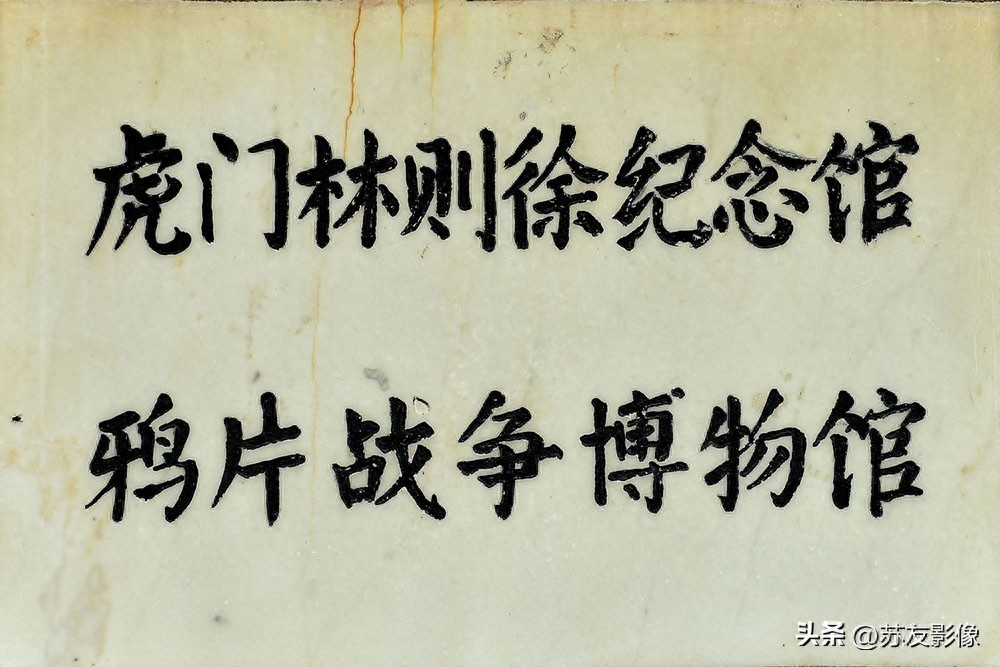 虎门林则徐纪念馆
鸦片战争博物馆
头条 @苏友影像